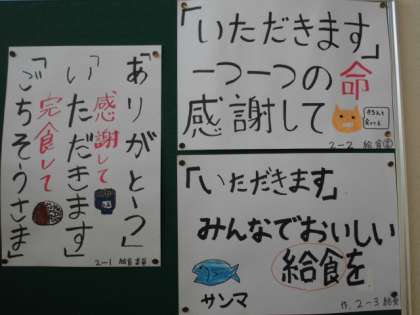 「ありがとう」
感謝して
「いただきます」
完食して
「ごちそうさま」
2-1 給食委員
「いただきます」
一つ一つの命
感謝して
きちんと
食べてね
2-2 給食
「いただきます」
みんなでおいしい
給食を
サンマ
作.2-3給食